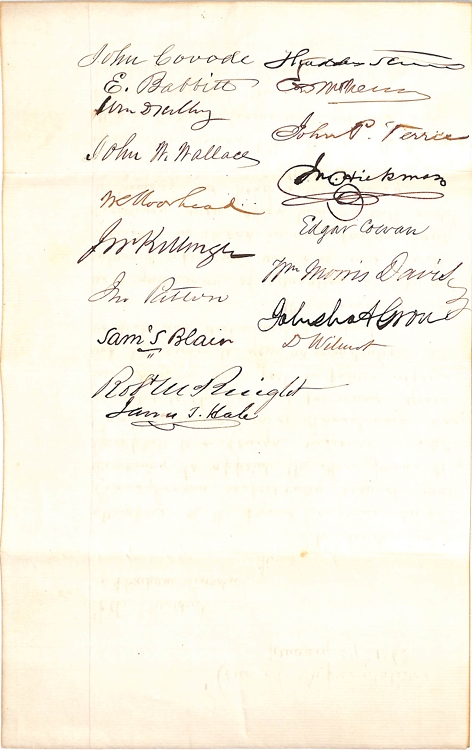 John Covode
E. Babbitt
Wm D Kelley
John W. Wallace
W K Moorhead
J W Killinger
Jno Patton
Sam'l S Blair
Robt McKnight
James T. Hale
Thaddeus Stevens
Ed McPherson
John P. Verree
Jno. Hickman
Edgar Cowan
Wm Morris Davis
Galusha A Grow
D Wilmot